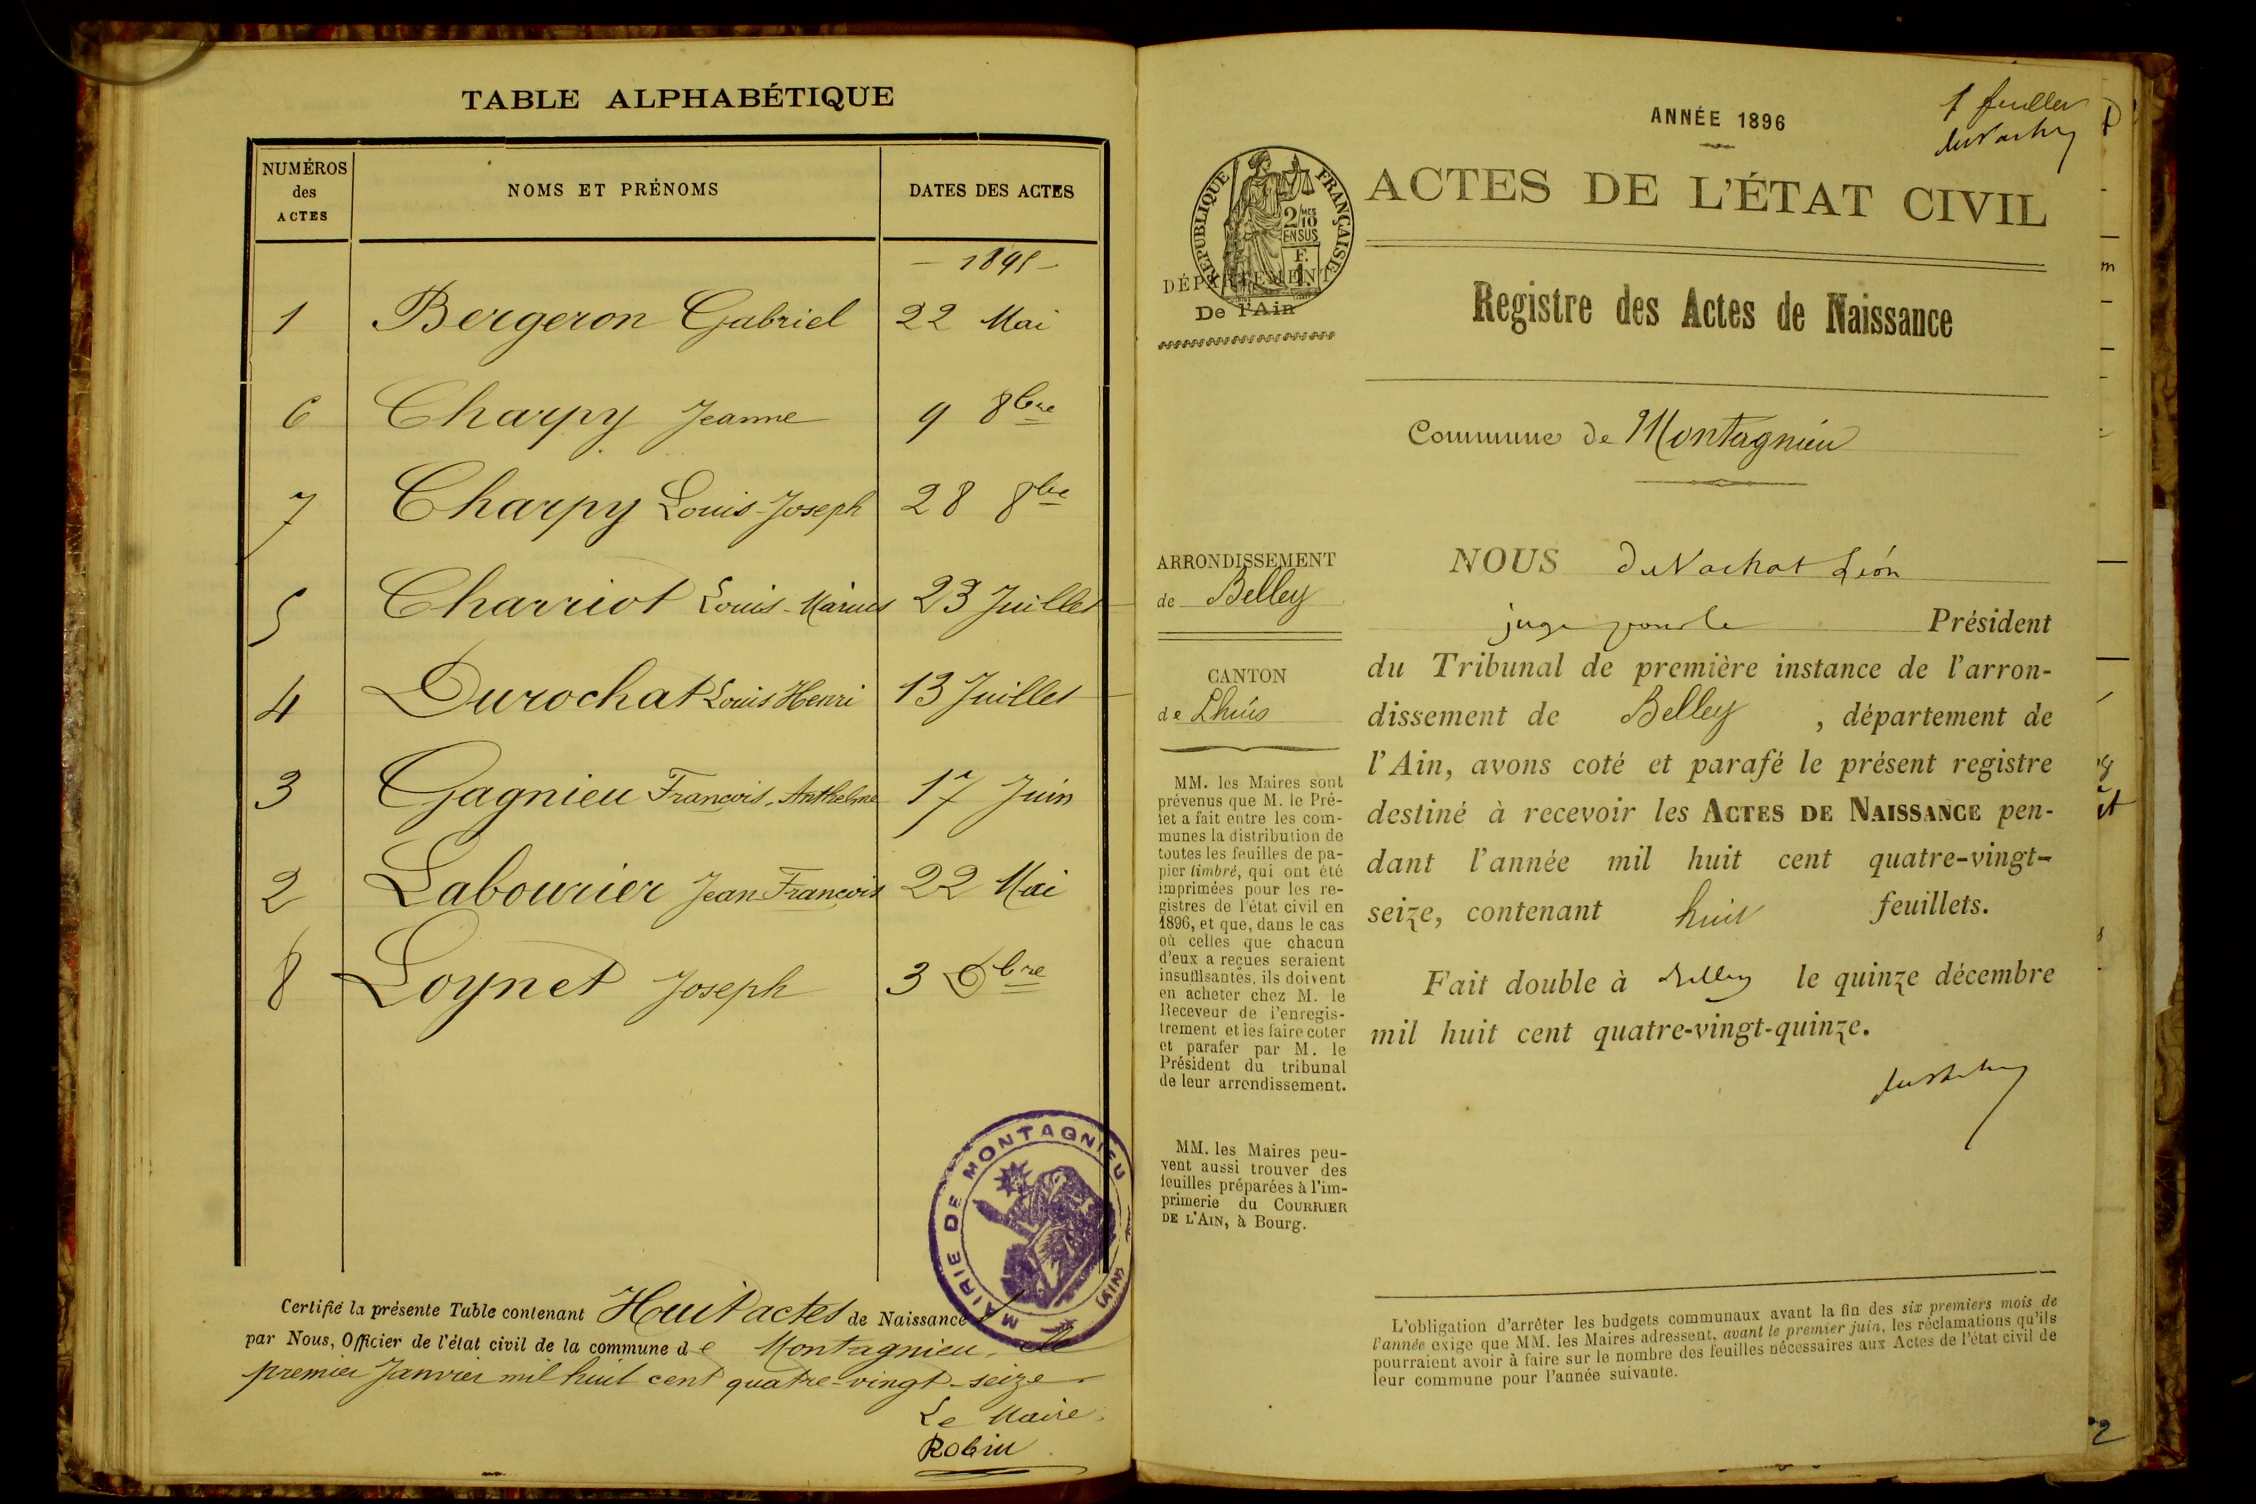 TABLE ALPHABÉTIQUE
NUMÉROS
des
ACTES
NOMS ET PRÉNOMS
DATES DES ACTES
- 1895 -
1 Bergeron Gabriel 22 Mai
6 Charpy Jeanne 9 8bre
7 Charpy Louis-Joseph 28 8bre
5 Charriot Louis-Marius 23 Juillet
4 Durochat Louis Henri 13 Juillet
3 Gagnieu François-Anthelme 17 Juin
2 Labourier Jean François 22 Mai
8 Loynet Joseph 3 Xbre
MAIRIE DE MONTAGNIEU
(AIN)
Certifié la présente Table contenant Huit actes de Naissance
par Nous, Officier de l'état civil de la commune de Montagnieu, le
premier Janvier mil huit cent quatre-vingt-seize
Le Maire,
Robin
ANNÉE 1896
1 feuillet
RÉPUBLIQUE FRANÇAISE
2/10mes
EN SUS
F.
1.
ACTES DE L'ÉTAT CIVIL
DÉPARTEMENT
De l'Ain
Registre des Actes de Naissance
Commune de Montagnieu
ARRONDISSEMENT
de Belley
CANTON
de Lhuis
MM. les Maires sont
prévenus que M. le Pré-
fet a fait entre les com-
munes la distribution de
toutes les feuilles de pa-
pier timbré, qui ont été
imprimées pour les re-
gistres de l'état civil en
1896, et que, dans le cas
où celles que chacun
d'eux a reçues seraient
insuffisantes, ils doivent
en acheter chez M. le
Receveur de l'enregis-
trement et les faire coter
et parafer par M. le
Président du tribunal
de leur arrondissement.
MM. les Maires peu-
vent aussi trouver des
feuilles préparées à l'im-
primerie du COURRIER
DE L'AIN, à Bourg.
NOUS DuVachat Léon
juge pour le Président
du Tribunal de première instance de l'arron-
dissement de Belley , département de
l'Ain, avons coté et parafé le présent registre
destiné à recevoir les ACTES DE NAISSANCE pen-
dant l'année mil huit cent quatre-vingt-
seize, contenant huit feuillets.
Fait double à Belley le quinze décembre
mil huit cent quatre-vingt-quinze.
L'obligation d'arrêter les budgets communaux avant la fin des six premiers mois de
l'année exige que MM. les Maires adressent, avant le premier juin, les réclamations qu'ils
pourraient avoir à faire sur le nombre des feuilles nécessaires aux Actes de l'état civil de
leur commune pour l'année suivante.
2